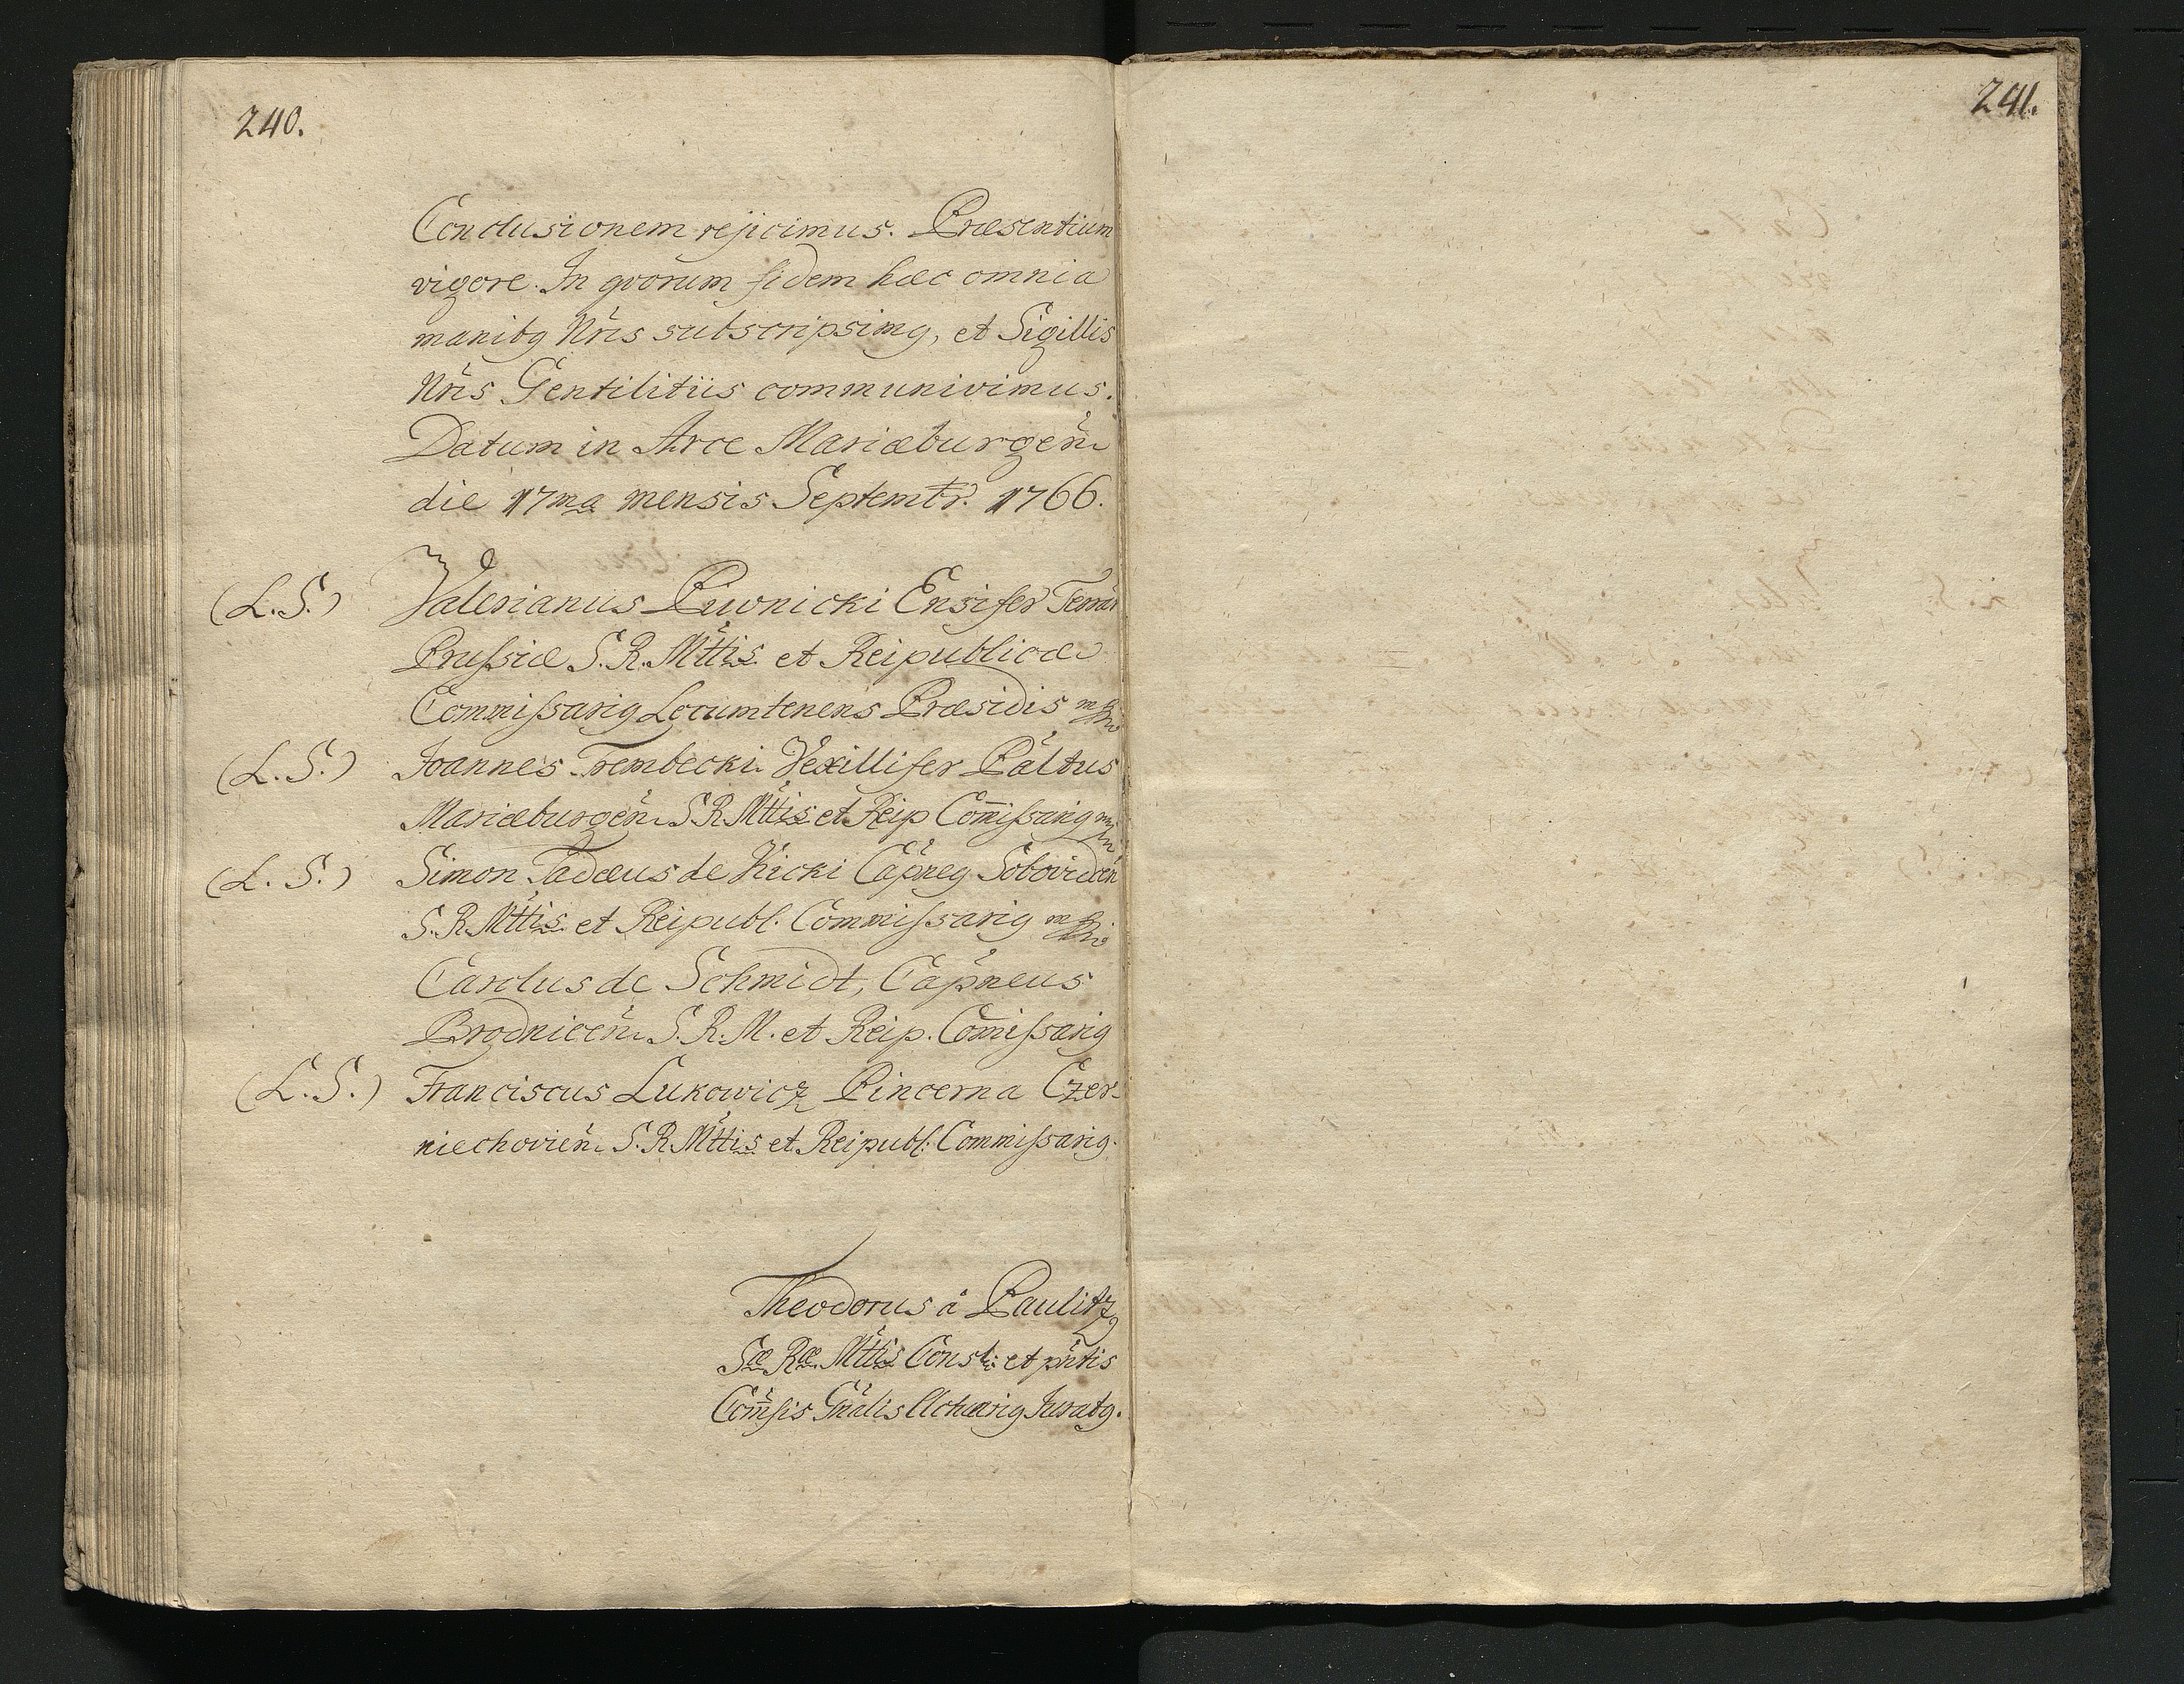 240.
Conclusionem rejicimus. Præsentium
vigore. In qvorum fidem hæc omnia
manibq Nris subscripsimq, et Sigillis
Nris Gentilitiis communivimus.
Datum in Arce Mariæburgen
die 17ma mensis Septembr. 1766.
(L. S.) Valerianus Piwnicki Ensifer Terrar
Prussiæ S. R. Mttis et Reipublicæ
Commissariq Locumtenens Præsidis mp
(L. S.) Joannes Trembecki Vexillifer Paltus
Mariæburgen S. R. Mttis et Reip Comissariq mp
(L. S.) Simon Tadæus de Kicki Capneq Sobovidcen
S. R. Mttis et Reipubl. Commissariq mp
Carolus de Schmidt, Capneus
Brodnicen S. R. M. et Reip. Comissariq
(L. S.) Franciscus Lukowicz Pincerna Czer-
niechovien S. R. Mttis et Reipubl. Commissariq.
Theodorus à Paulitz
Sæ Ræ Mttis Consl: et pntis
Comsis Gnalis Actuariq Juratq.
241.